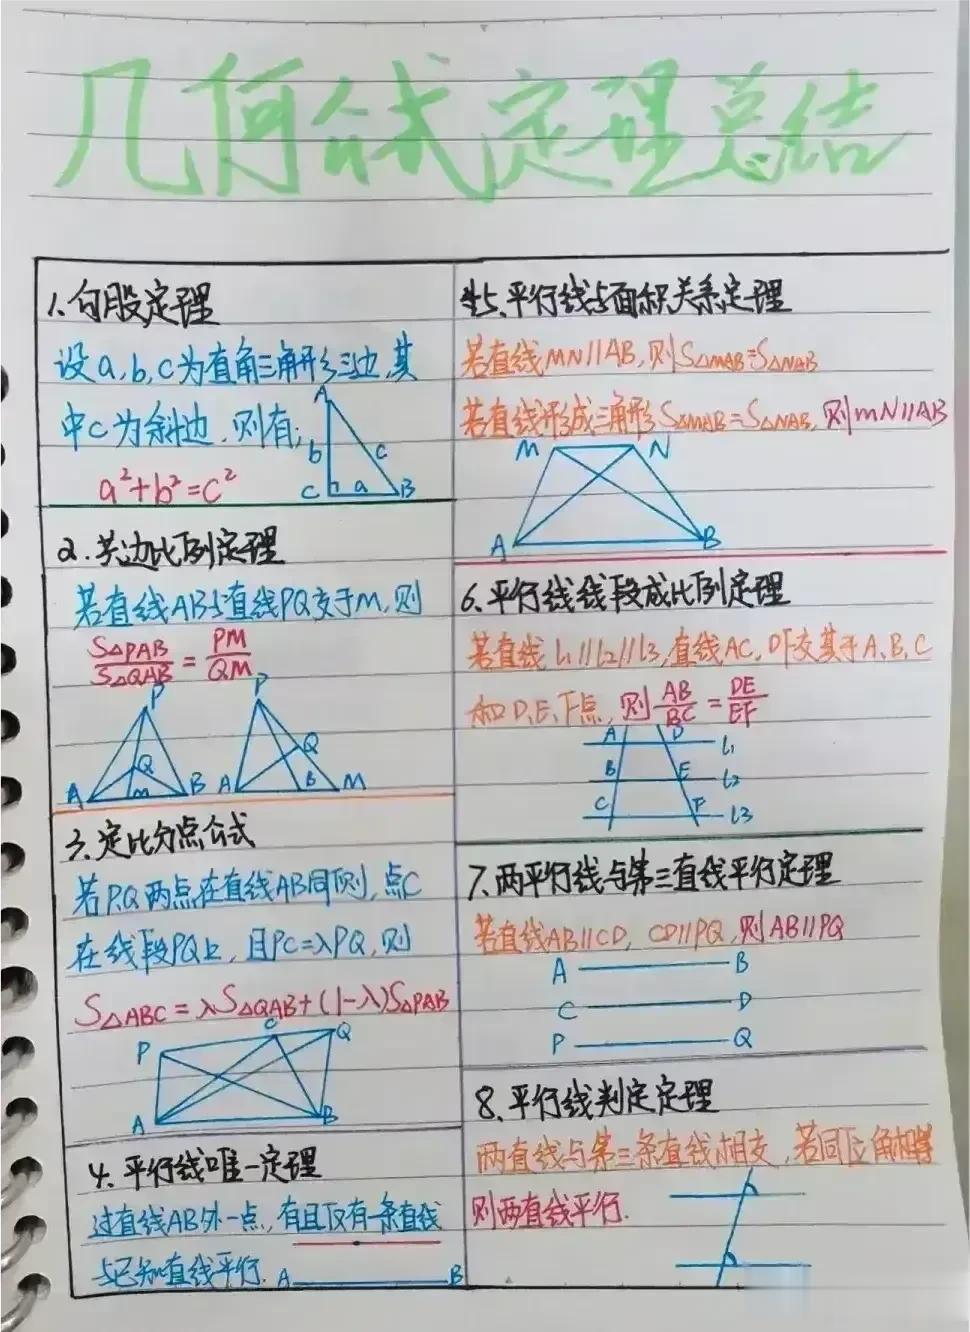 几何公式定理总结
1.勾股定理
设a,b,c为直角三角形三边,其
中c为斜边,则有;
a²+b²=c²
A
b
c
C
a
B
2.共边比例定理
若直线AB与直线PQ交于M,则
S△PAB/S△QAB=PM/QM
P
Q
A
M
B
P
Q
A
B
M
3.定比分点公式
若P,Q两点在直线AB同侧,点C
在线段PQ上,且PC=λPQ,则
S△ABC=λS△QAB+(1-λ)S△PAB
P
C
Q
A
B
4.平行线唯一定理
过直线AB外一点,有且仅有一条直线
与已知直线平行.
A
B
5.平行线与面积关系定理
若直线MN//AB,则S△MAB=S△NAB
若直线形成三角形S△MAB=S△NAB,则MN//AB
M
N
A
B
6.平行线线段成比例定理
若直线l1//l2//l3,直线AC,DF交其于A、B、C
和D、E、F点,则AB/BC=DE/EF
A
D
l1
B
E
l2
C
F
l3
7.两平行线与第三直线平行定理
若直线AB//CD,CD//PQ,则AB//PQ
A
B
C
D
P
Q
8.平行线判定定理
两直线与第三条直线相交,若同位角相等
则两直线平行.